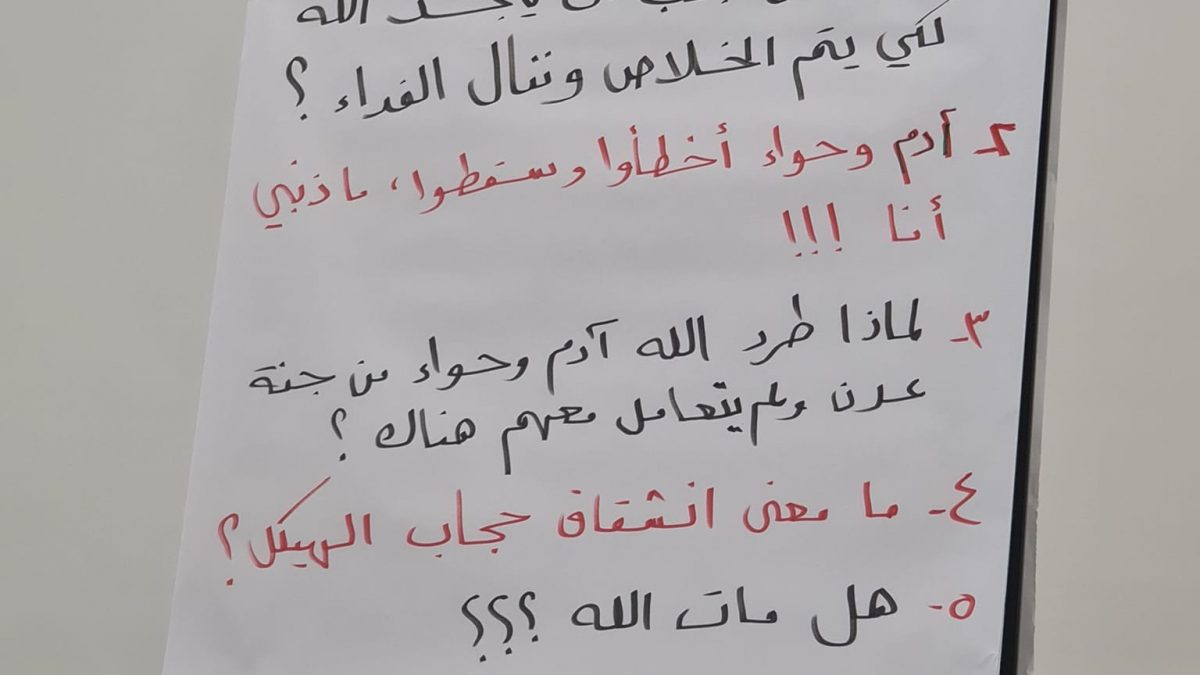 أن يتجسد الله
لكي يتم الخلاص وننال الفداء ؟
٢- آدم وحواء أخطأوا وسقطوا، ما ذنبي
أنا !!!
٣- لماذا طرد الله آدم وحواء من جنة
عدن ولم يتعامل معهم هناك ؟
٤- ما معنى انشقاق حجاب الهيكل ؟
٥- هل مات الله ؟؟؟